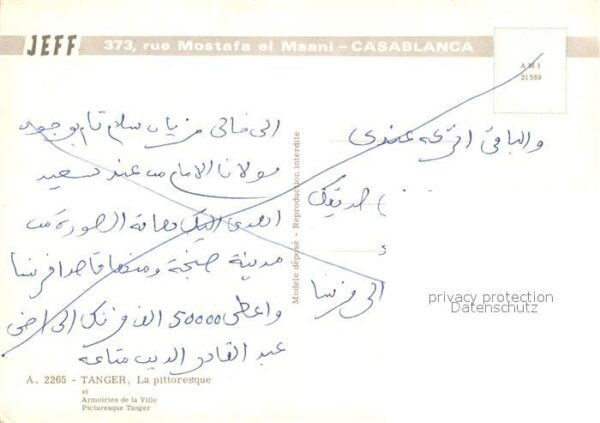 JEFF 373, rue Mostafa el Maani – CASABLANCA
A M I
21 569
الى خالي مزيان سلام تام بوجود
مولانا الامام من عند سعيد
اهدي اليك هاته الصورة من
مدينة طنجة ومنها قاصد افرنسا
واعطى 50000 الف فرنك الى اخي
عبد القادر الدين متاعه
والباقي اتركه عندي
صديقك
الى فرنسا
Modèle déposé - Reproduction interdite
privacy protection
Datenschutz
A. 2265 - TANGER, La pittoresque
et
Armoiries de la Ville
Picturesque Tanger